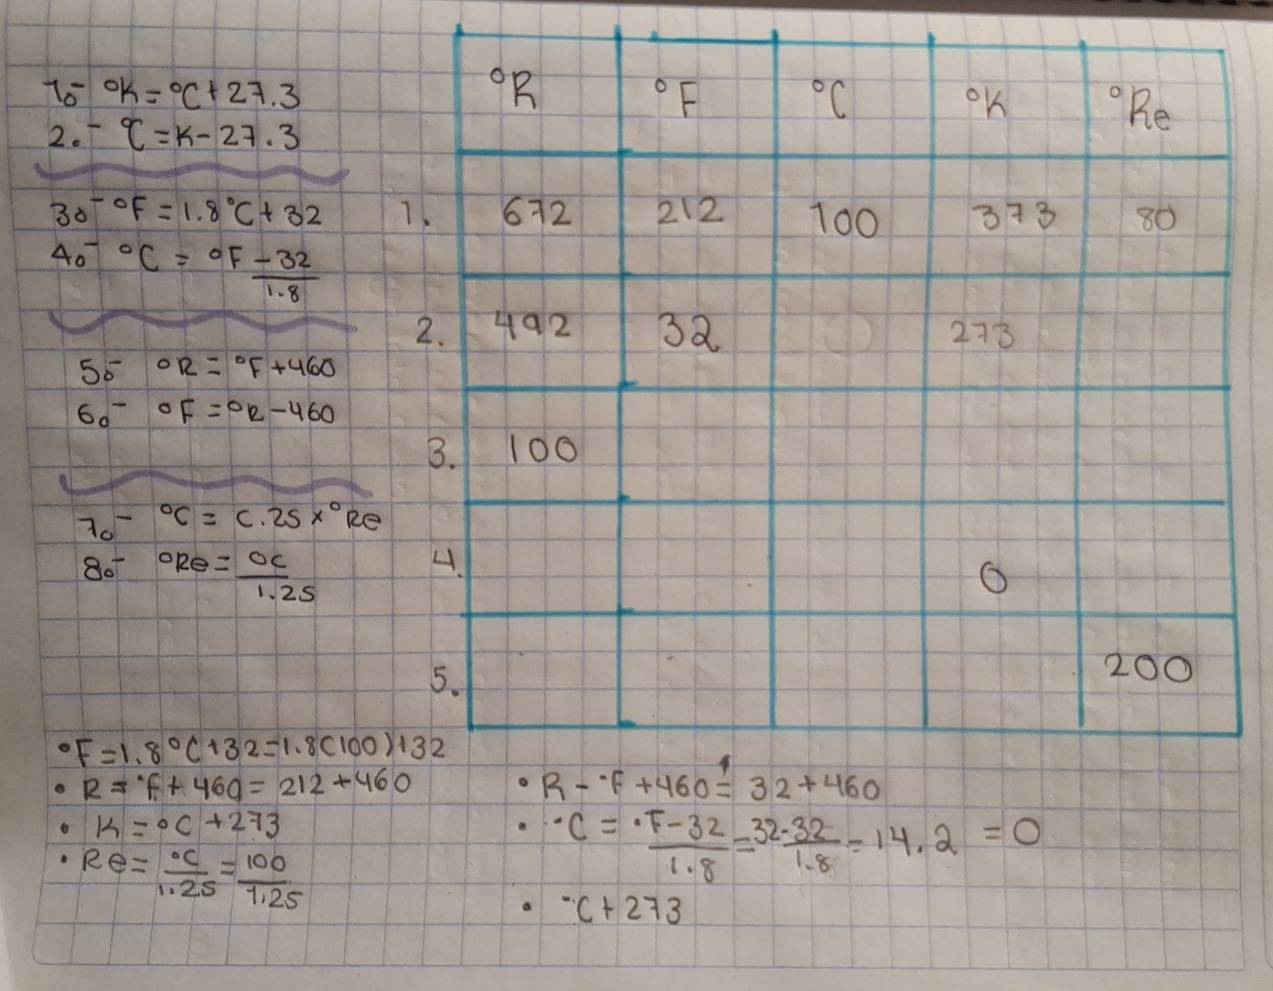 1.- °K=°C+27.3
2.- °C=K-27.3
3.- °F=1.8°C+32
4.- °C = °F-32
1.8
5.- °R=°F+460
6.- °F=°R-460
7.- °C= C.25x°Re
8.- °Re= °C
1.25
°R °F °C °K °Re
1. 672 212 100 373 80
2. 492 32 0 273
3. 100
4. 0
5. 200
°F=1.8°C+32=1.8(100)+32
• R=°F+460=212+460
• K=°C+273
• Re= °C = 100
1.25 1.25
• R-°F+460= 32+460
• °C= °F-32 = 32-32 = 14.2 =0
1.8 1.8
• °C+273